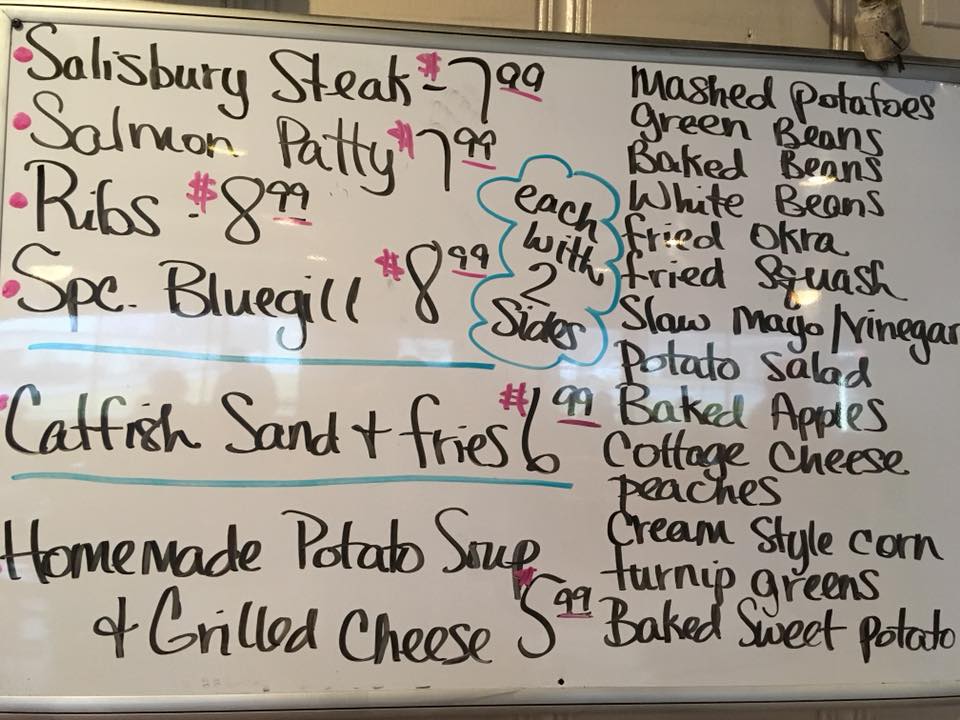 • Salisbury Steak - $7.99
• Salmon Patty $7.99
• Ribs - $8.99
• Spc. Bluegill $8.99
each
with
2
Sides
Catfish Sand + fries $6.99
Homemade Potato Soup
+ Grilled Cheese $5.99
Mashed potatoes
green Beans
Baked Beans
White Beans
fried Okra
fried Squash
Slaw Mayo/Vinegar
Potato Salad
Baked Apples
Cottage Cheese
peaches
Cream Style corn
turnip greens
Baked Sweet potato